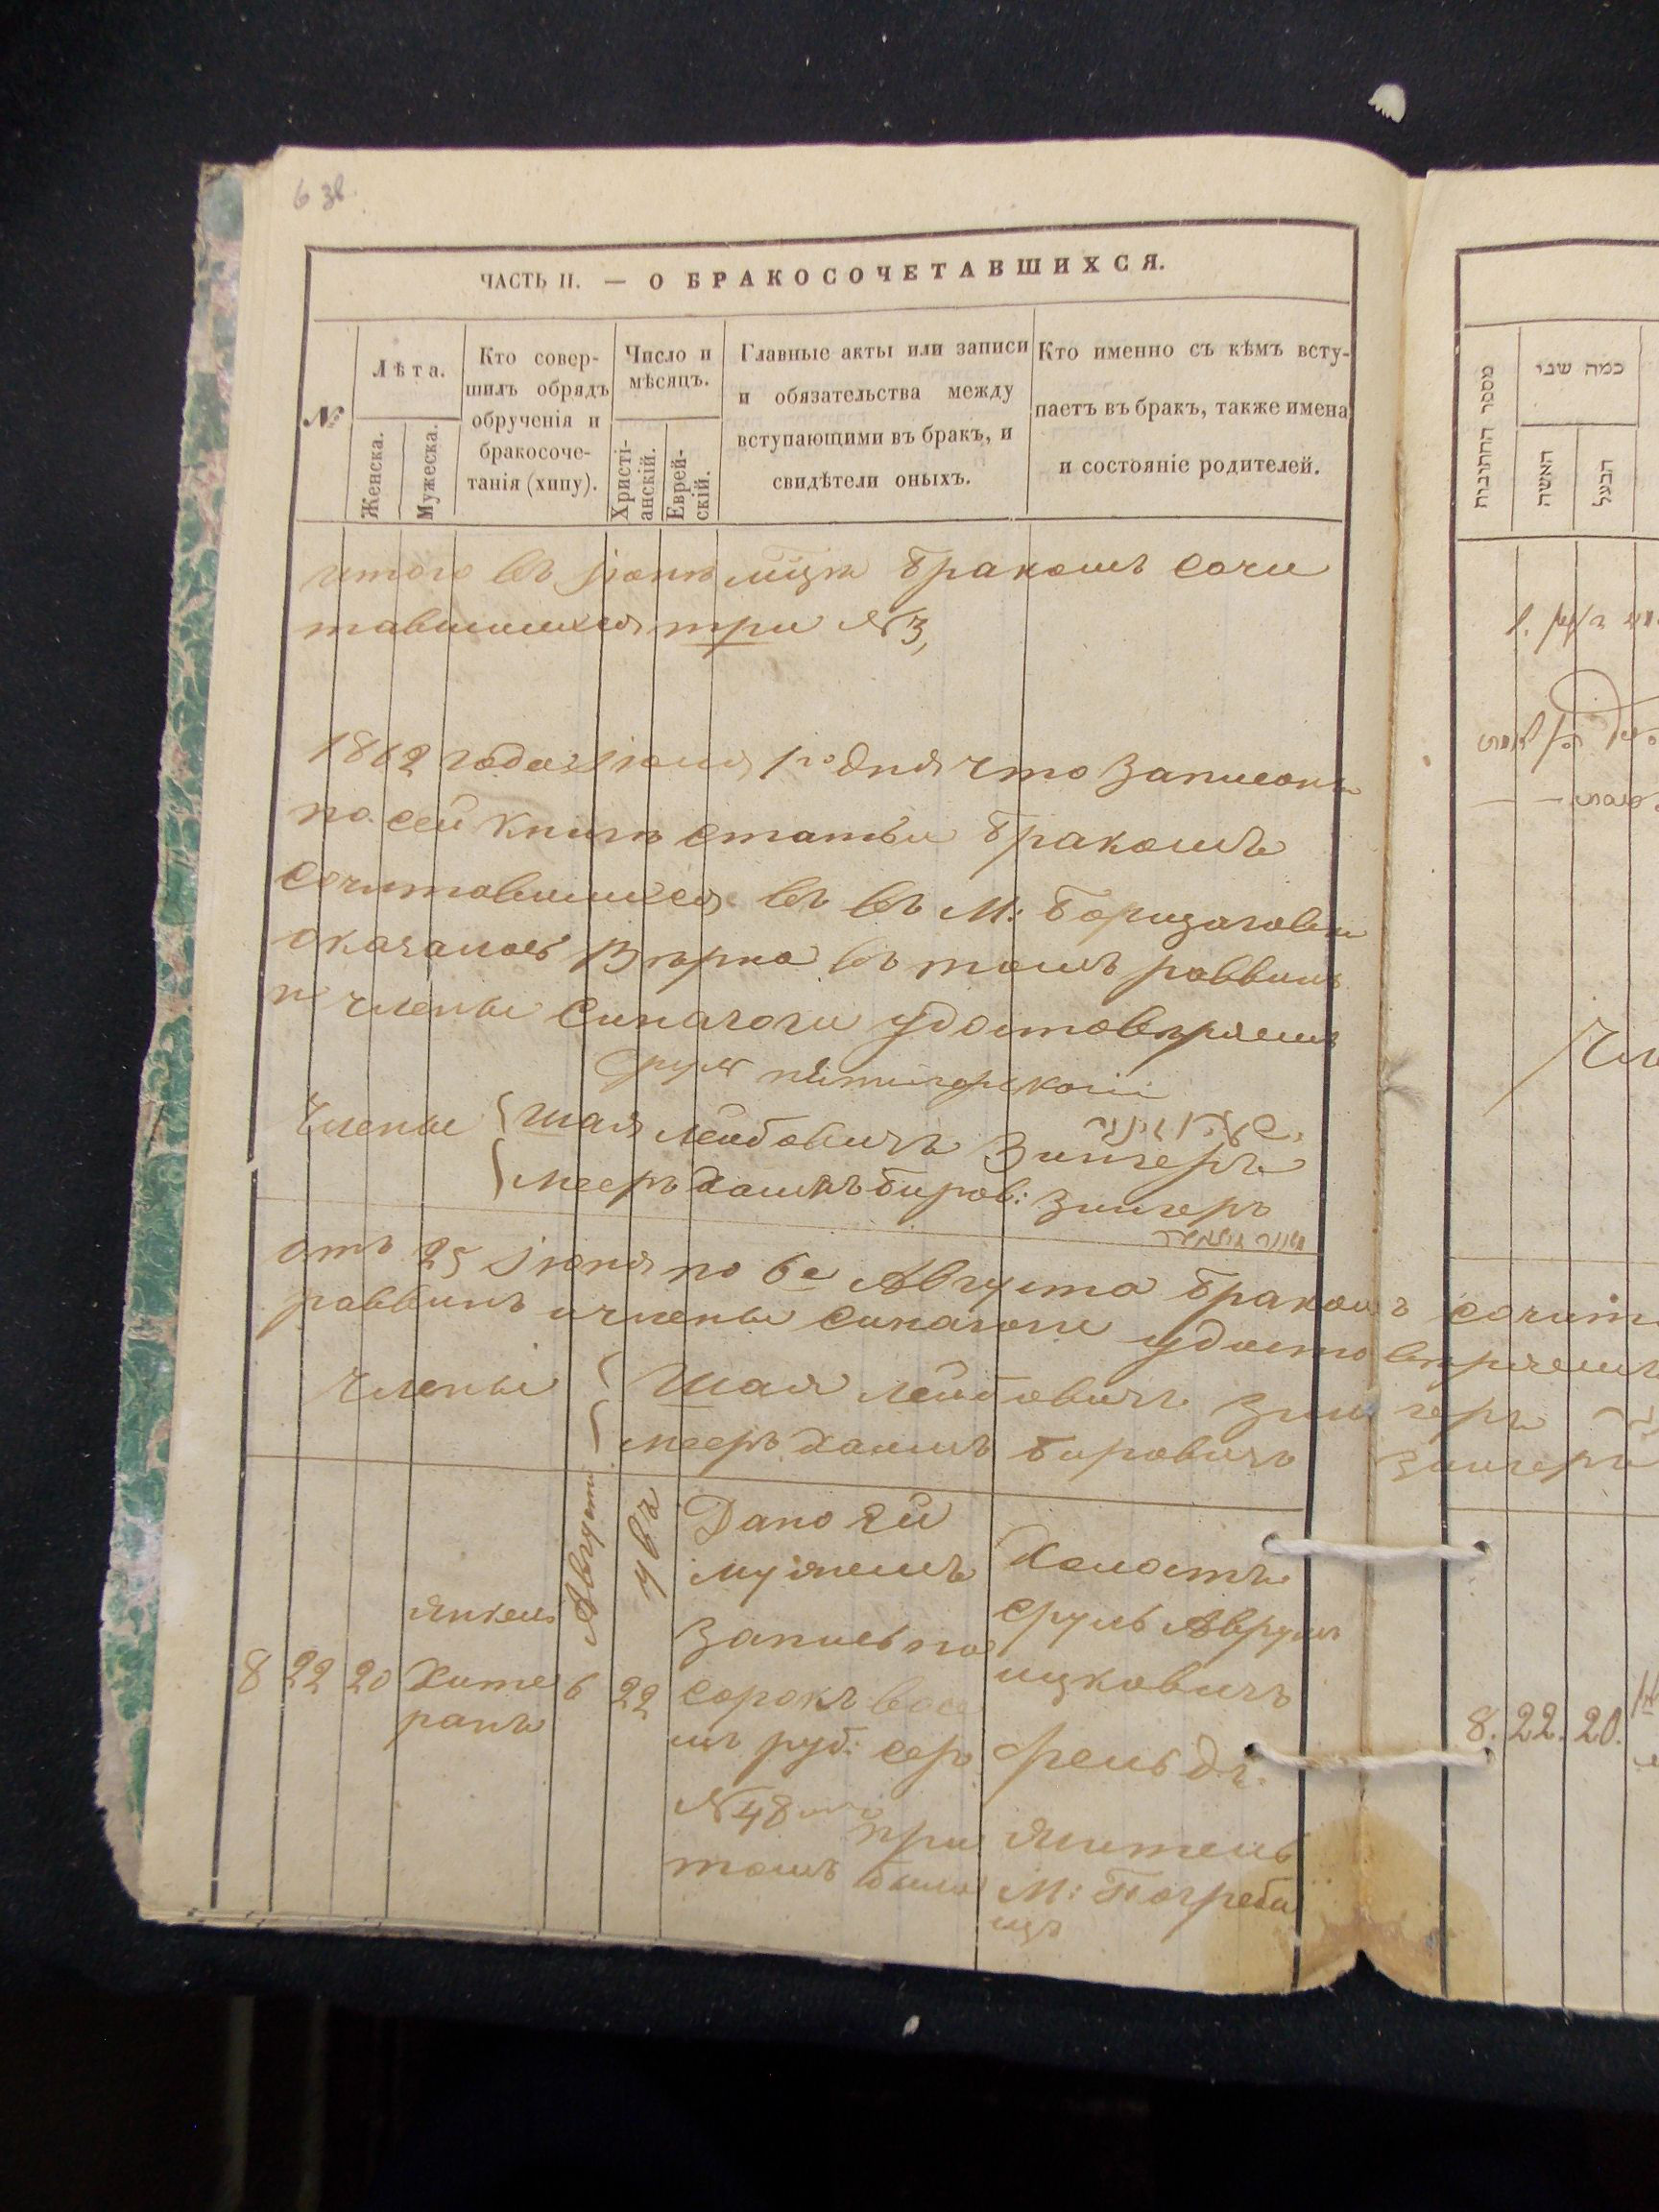 6 зв.
ЧАСТЬ II. — О БРАКОСОЧЕТАВШИХСЯ.
№
Лѣта.
Женска.
Мужеска.
Кто совер-
шилъ обрядъ
обрученія и
бракосоче-
танія (хипу).
Число и
мѣсяцъ.
Христі-
анскій.
Еврей-
скій.
Главные акты или записи
и обязательства между
вступающими въ бракъ, и
свидѣтели оныхъ.
Кто именно съ кѣмъ всту-
паетъ въ бракъ, также имена
и состояніе родителей.
итого въ Іюнѣ мцѣ бракомъ сочи
тавшихся три №3,
1862 года Іюля 1го дня что записаны
по сей книгѣ статьи бракомъ
сочитавшихся въ въ М:
оказалось Вѣрно въ томъ раввинъ
и члены синагоги удостовѣряемъ
Сруль
Члены Шая Лейбовичъ Зингеръ
Мееръ Хаимъ Биров: Зингеръ
отъ 25 Іюня по 6е Августа бракомъ сочит
раввинъ и члены синагоги удостовѣряемъ
Члены Шая Лейбовичъ Зингеръ
Мееръ Хаимъ Бировичъ Зингеръ
8
22
20
Янкель
Хите
ранъ
Августа
6
22
Дано ей
мужемъ
запись на
сорокъ восе
мъ руб: сер
№48
при
томъ были
Холостъ
Сруль Аврум
ицковичъ
Френдъ.
житель
М: Погреби
щъ
מספר החתונות
כמה שני
האשה
הבעל
8. 22. 20.